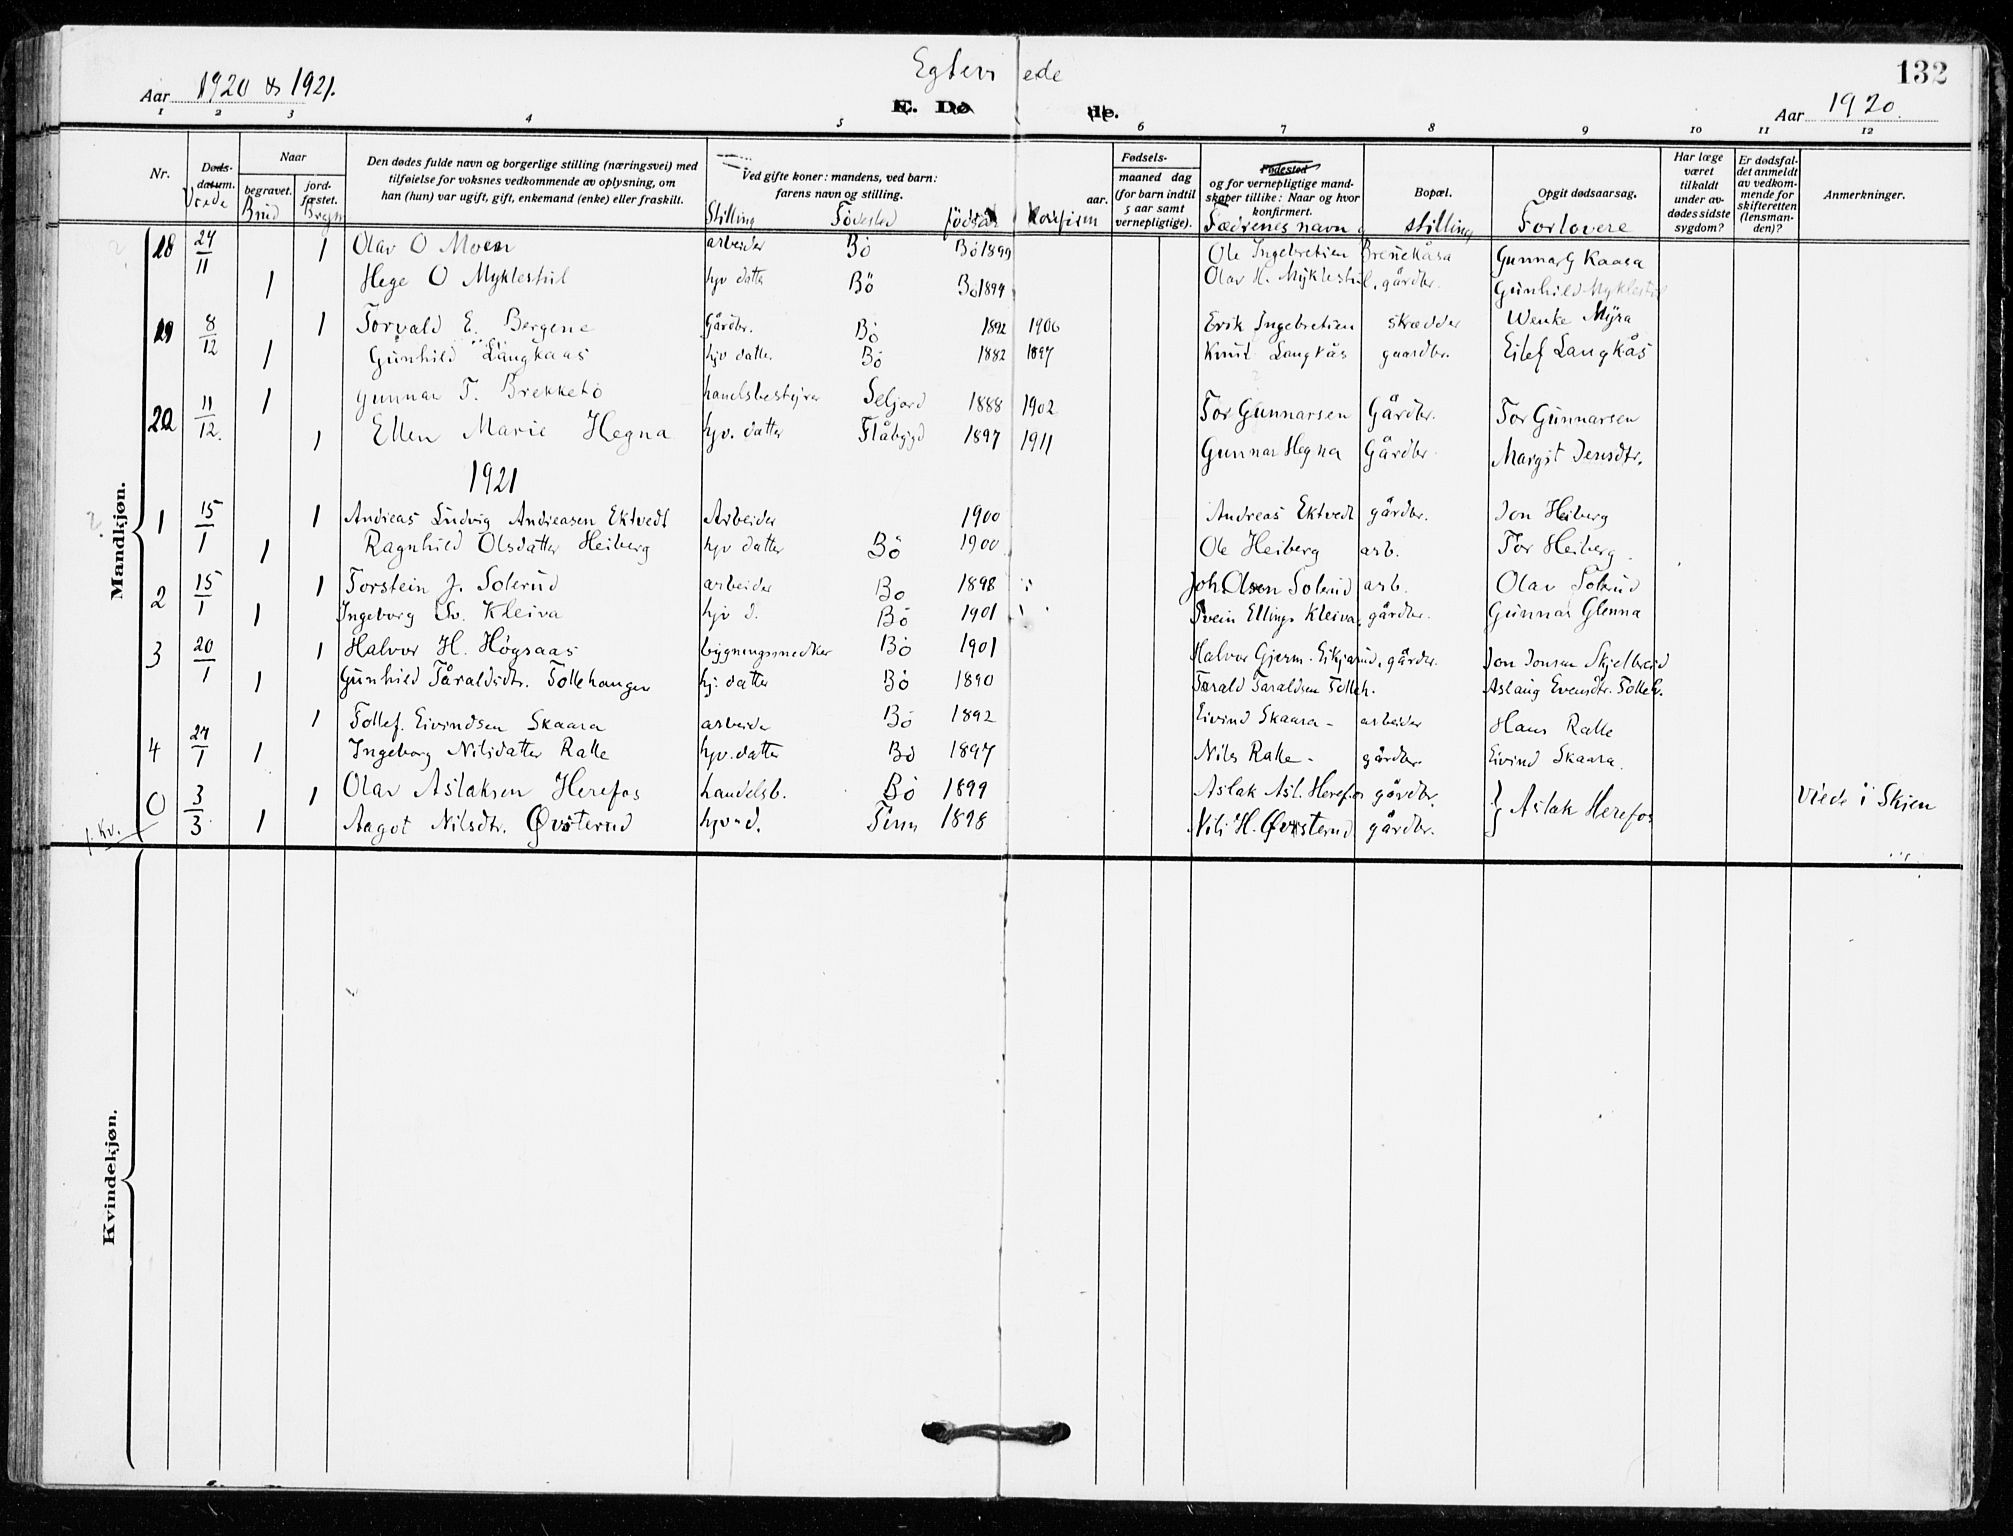 Egtevi ede
132
Aar 1920 & 1921.
E. Dø de.
Aar 1920.
1 2 3 4 5 6 7 8 9 10 11 12
Nr.
Døds-datum.
Viede
Naar
begravet.
Brud
jord-fæstet.
Den dødes fulde navn og borgerlige stilling (næringsvei) med
tilføielse for voksnes vedkommende av oplysning, om
han (hun) var ugift, gift, enkemand (enke) eller fraskilt.
Ved gifte koner: mandens, ved barn:
farens navn og stilling.
Stilling Fødested fødselsår Konfirm
aar.
Fødsels-
maaned dag
(for barn indtil
5 aar samt
vernepligtige).
Fødested
og for vernepligtige mand-
skaper tillike: Naar og hvor
konfirmert.
Fædrenes navn
Bopæl.
stilling
Opgit dødsaarsag.
Forlovere
Har læge
været
tilkaldt
under av-
dødes sidste
sygdom?
Er dødsfal-
det anmeldt
av vedkom-
mende for
skifteretten
(lensman-
den)?
Anmerkninger.
Mandkjøn.
28 24/11 1 Olav O Moen arbeider Bö Bö 1899 Ole Ingebretsen Brenekåsa Gunnar G Kaasa
1 Hege O Myklestul hjv datter Bö Bö 1894 Olav H. Myklestul, gårdbr. Gunhild Myklestul
29 8/12 1 Torvald E. Bergene Gårdbr. Bö 1892 1906 Erik Ingebretsen skrædder Wenke Myra
1 Gunhild Langkaas hjv datter Bö 1882 1897 Knut Langkås gaardbr. Eilef Langkås
11/12. 1 Gunnar T. Brekketo handelsbestyrer Seljord 1888 1902 Tor Gunnarsen Gårdbr. Tor Gunnarsen
1 Ellen Marie Hegna hjv. datter Flåbygd 1897 1911 Gunnar Hegna Gårdbr. Margit Jensdtr.
1921
1 15/1 1 Andreas Ludvig Andreasen Ektvedt Arbeider 1900 Andreas Ektvedt gårdbr. Jon Heiberg
1 Ragnhild Olsdatter Heiberg hjv datter Bö 1900 Ole Heiberg arb. Tor Heiberg
2 15/1 1 Torstein J. Solerud arbeider Bö 1898 Joh. Olsen Solerud arb. Olav Solerud
1 Ingeborg Sv. Kleiva hjv d. Bö 1901 Svein Ellings Kleiva, gårdbr. Gunnar Glenna
3 20/1 1 Halvor H. Høgsaas bygningssnedker Bö 1901 Halvor Gjerm. Eikjarud, gårdbr. Jon Jonsen Skjelbreid
1 Gunhild Tåraldsdtr. Follehaugen hj. datter Bö 1890 Tarald Taraldsen Folleh. Aslaug Evensdtr. Folleh.
4 27/1 1 Tollef. Eivindsen Skaara arbeider Bö 1892 Eivind Skaara - arbeider Hans Ralle
1 Ingeborg Nilsdatter Ralle hjv. datter Bö 1897 Nils Ralle - gårdbr. Eivind Skaara.
0 3/3 1 Olav Aslaksen Herefos handelsb. Bö 1899 Aslak Asl. Herefos gårdbr. } Aslak Herefos Viede i Skien
1 Aagot Nilsdtr. Øvsterud hjv. d. Tinn 1898 Nils H. Øvsterud gårdbr.
1. Kv.
Kvindekjøn.